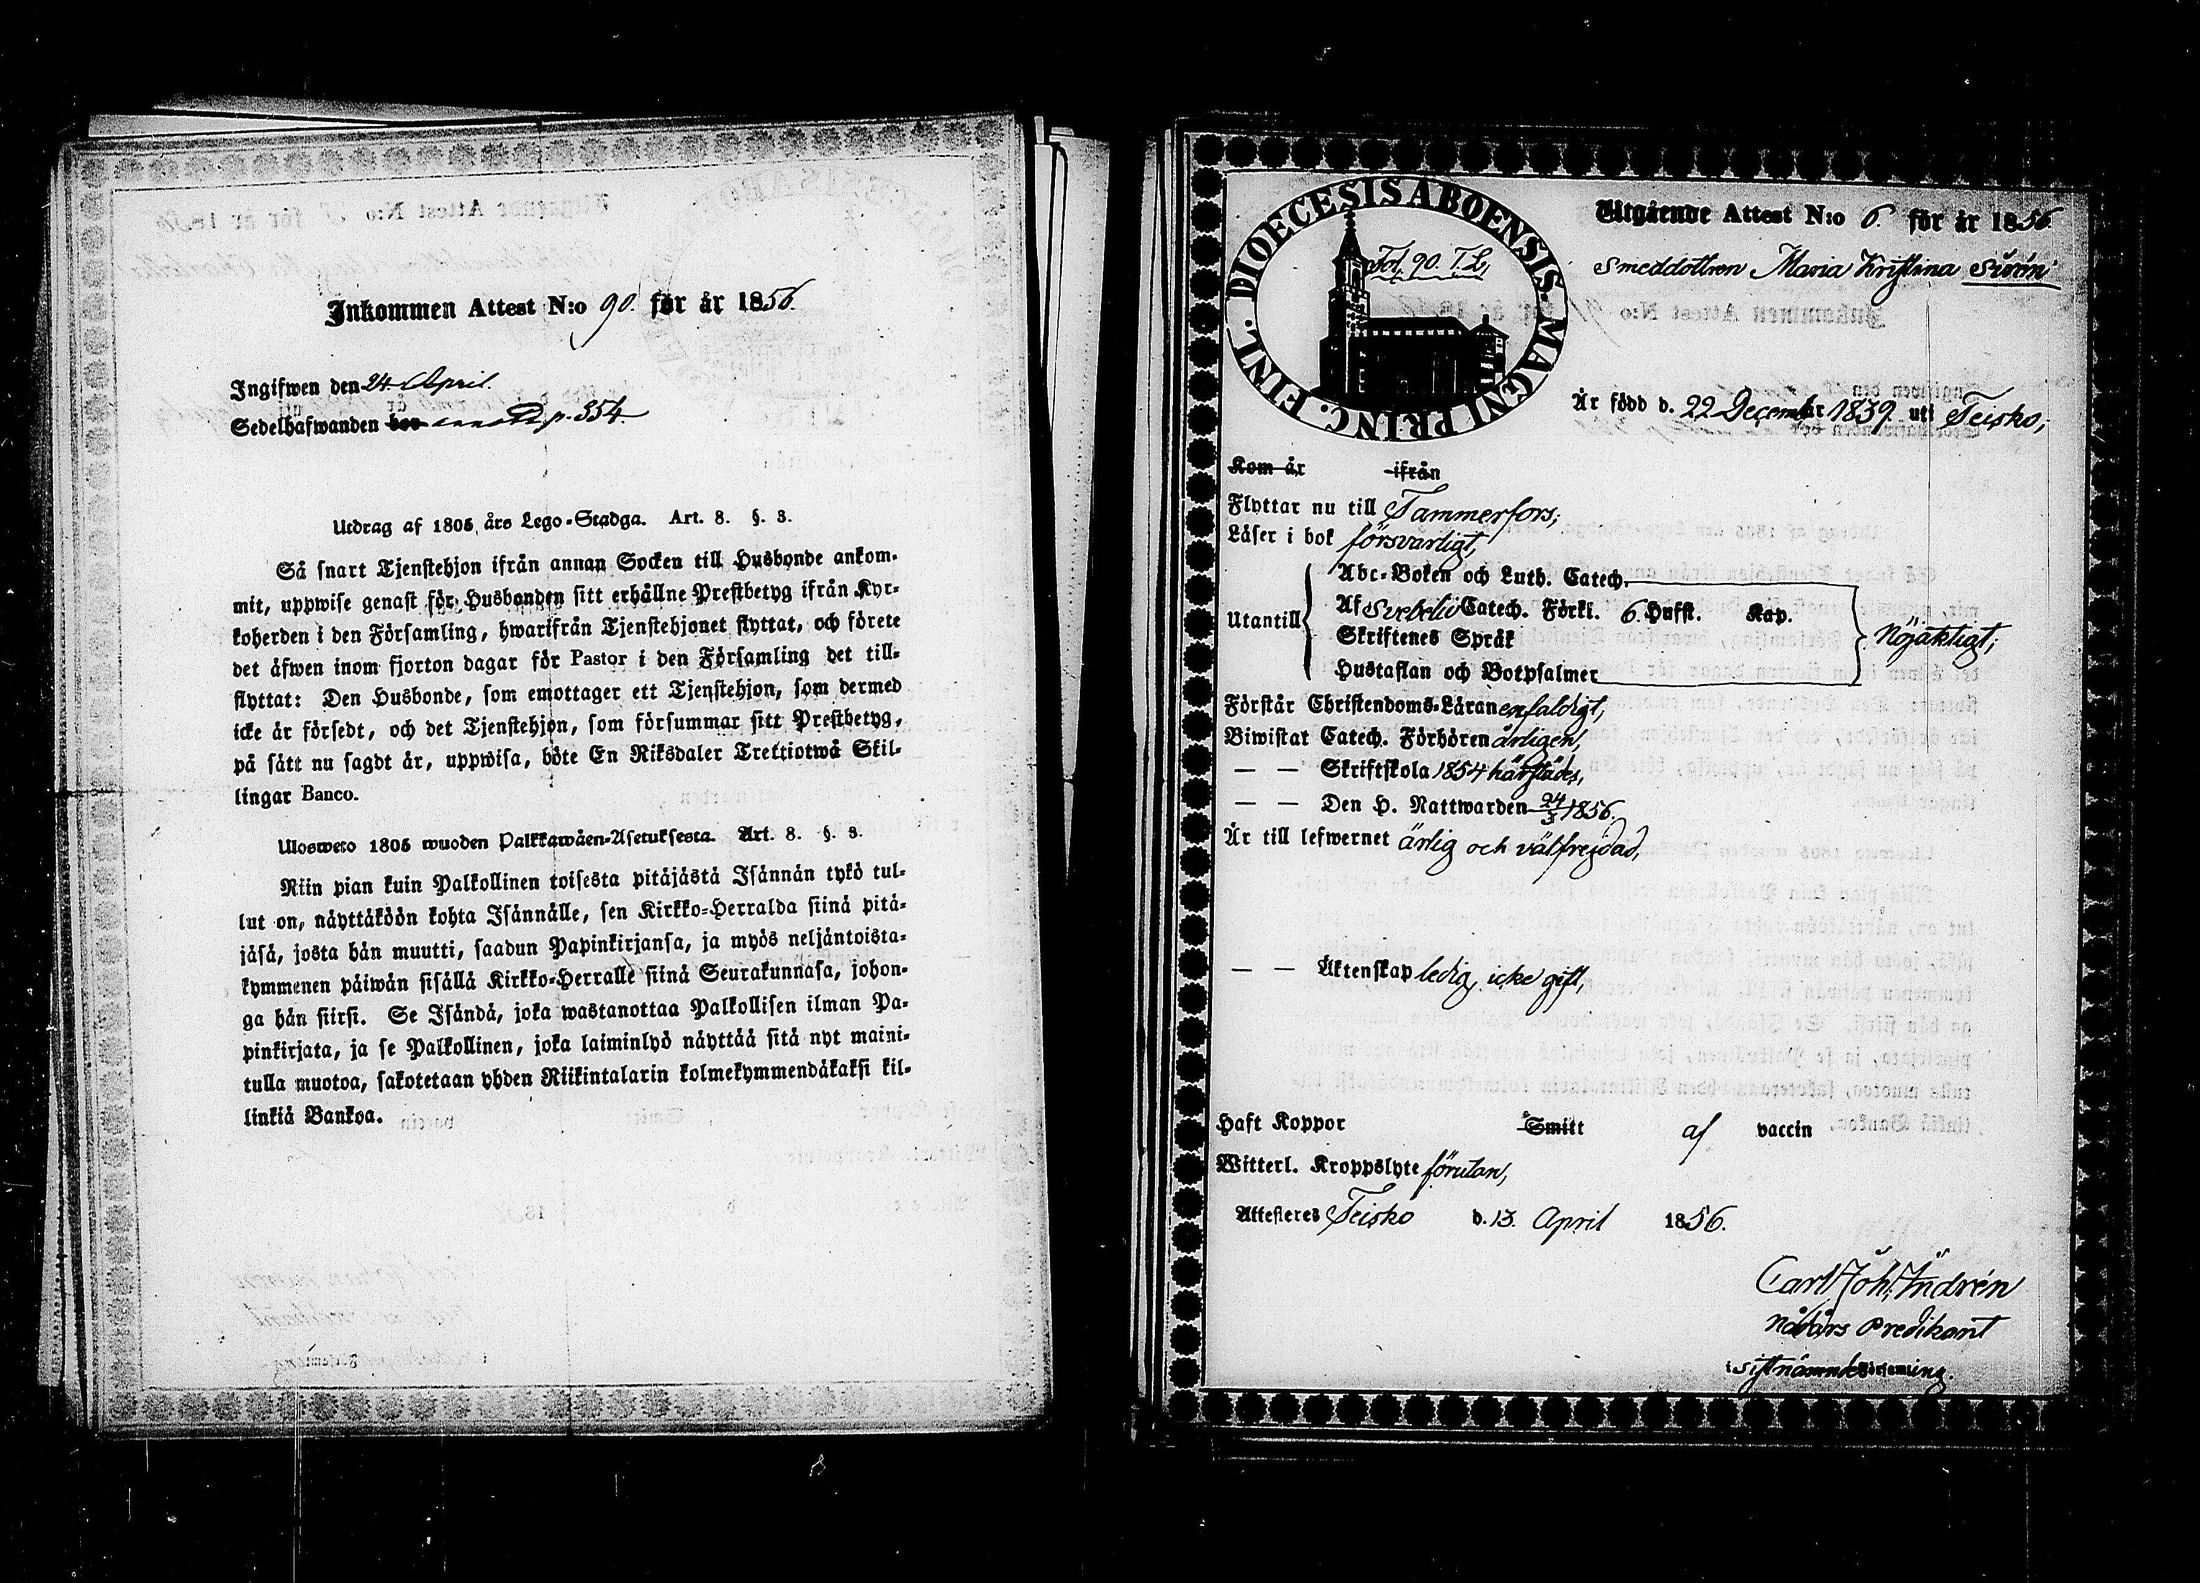 Inkommen Attest N:o 90. för år 1856.
Ingifwen den 24. April.
Sedelhafwanden p. 354.
Utdrag af 1805 års Lego-Stadga. Art. 8. §. 3.
Så snart Tjenstehjon ifrån annan Socken till Husbonde ankom-
mit, uppwise genast för Husbonden sitt erhållne Prestbetyg ifrån Kyr-
koherden i den Församling, hwarifrån Tjenstehjonet flyttat, och förete
det äfwen inom fjorton dagar för Pastor i den Församling det till-
flyttat: Den Husbonde, som emottager ett Tjenstehjon, som dermed
icke är försedt, och det Tjenstehjon, som försummar sitt Prestbetyg,
på sätt nu sagdt är, uppwisa, böte En Riksdaler Trettiotwå Skil-
lingar Banco.
Ulosweto 1805 wuoden Palkkawäen-Asetuksesta. Art. 8. §. 3.
Niin pian kuin Palkollinen toisesta pitäjästä Isännän tykö tul-
lut on, näyttäköön kohta Isännälle, sen Kirkko-Herralda siinä pitä-
jäsä, josta hän muutti, saadun Papinkirjansa, ja myös neljäntoista-
kymmenen päiwän sisällä Kirkko-Herralle siinä Seurakunnasa, johon-
ga hän siirsi. Se Isändä, joka wastanottaa Palkollisen ilman Pa-
pinkirjata, ja se Palkollinen, joka laiminlyö näyttää sitä nyt maini-
tulla muotoa, sakotetaan yhden Riikintalarin kolmekymmendäkaksi kil-
linkiä Bankoa.
DIOECESIS ABOENSIS. MAGNI PRINC. FINL.
Fol. 90. T.L.
Utgående Attest N:o 6. för år 1856.
Smeddottren Maria Kristina Sirén
Är född d. 22 December 1839. uti Teisko,
Kom år ifrån
Flyttar nu till Tammerfors,
Läser i bok försvarligt,
Utantill
Abc-Boken och Luth. Catech.
Af Svebelii Catech. Förkl. 6. Hufst. Kap.
Skriftenes Språk
Hustaflan och Botpsalmer
nöjaktigt,
Förstår Christendoms-Läran enfaldigt,
Biwistat Catech. Förhören årligen,
— — Skriftskola 1854 härstädes,
— — Den H. Nattwarden 24/3 1856.
Är till lefwernet ärlig och välfreidad,
— — Äktenskap ledig, icke gift,
Haft Koppor Smitt af vaccin
Witterl. Kroppslyte förutan,
Attesteres Teisko d. 13. April 1856.
Carl Joh. Andrén
nådårs Predikant
i sistnämnde Församling.